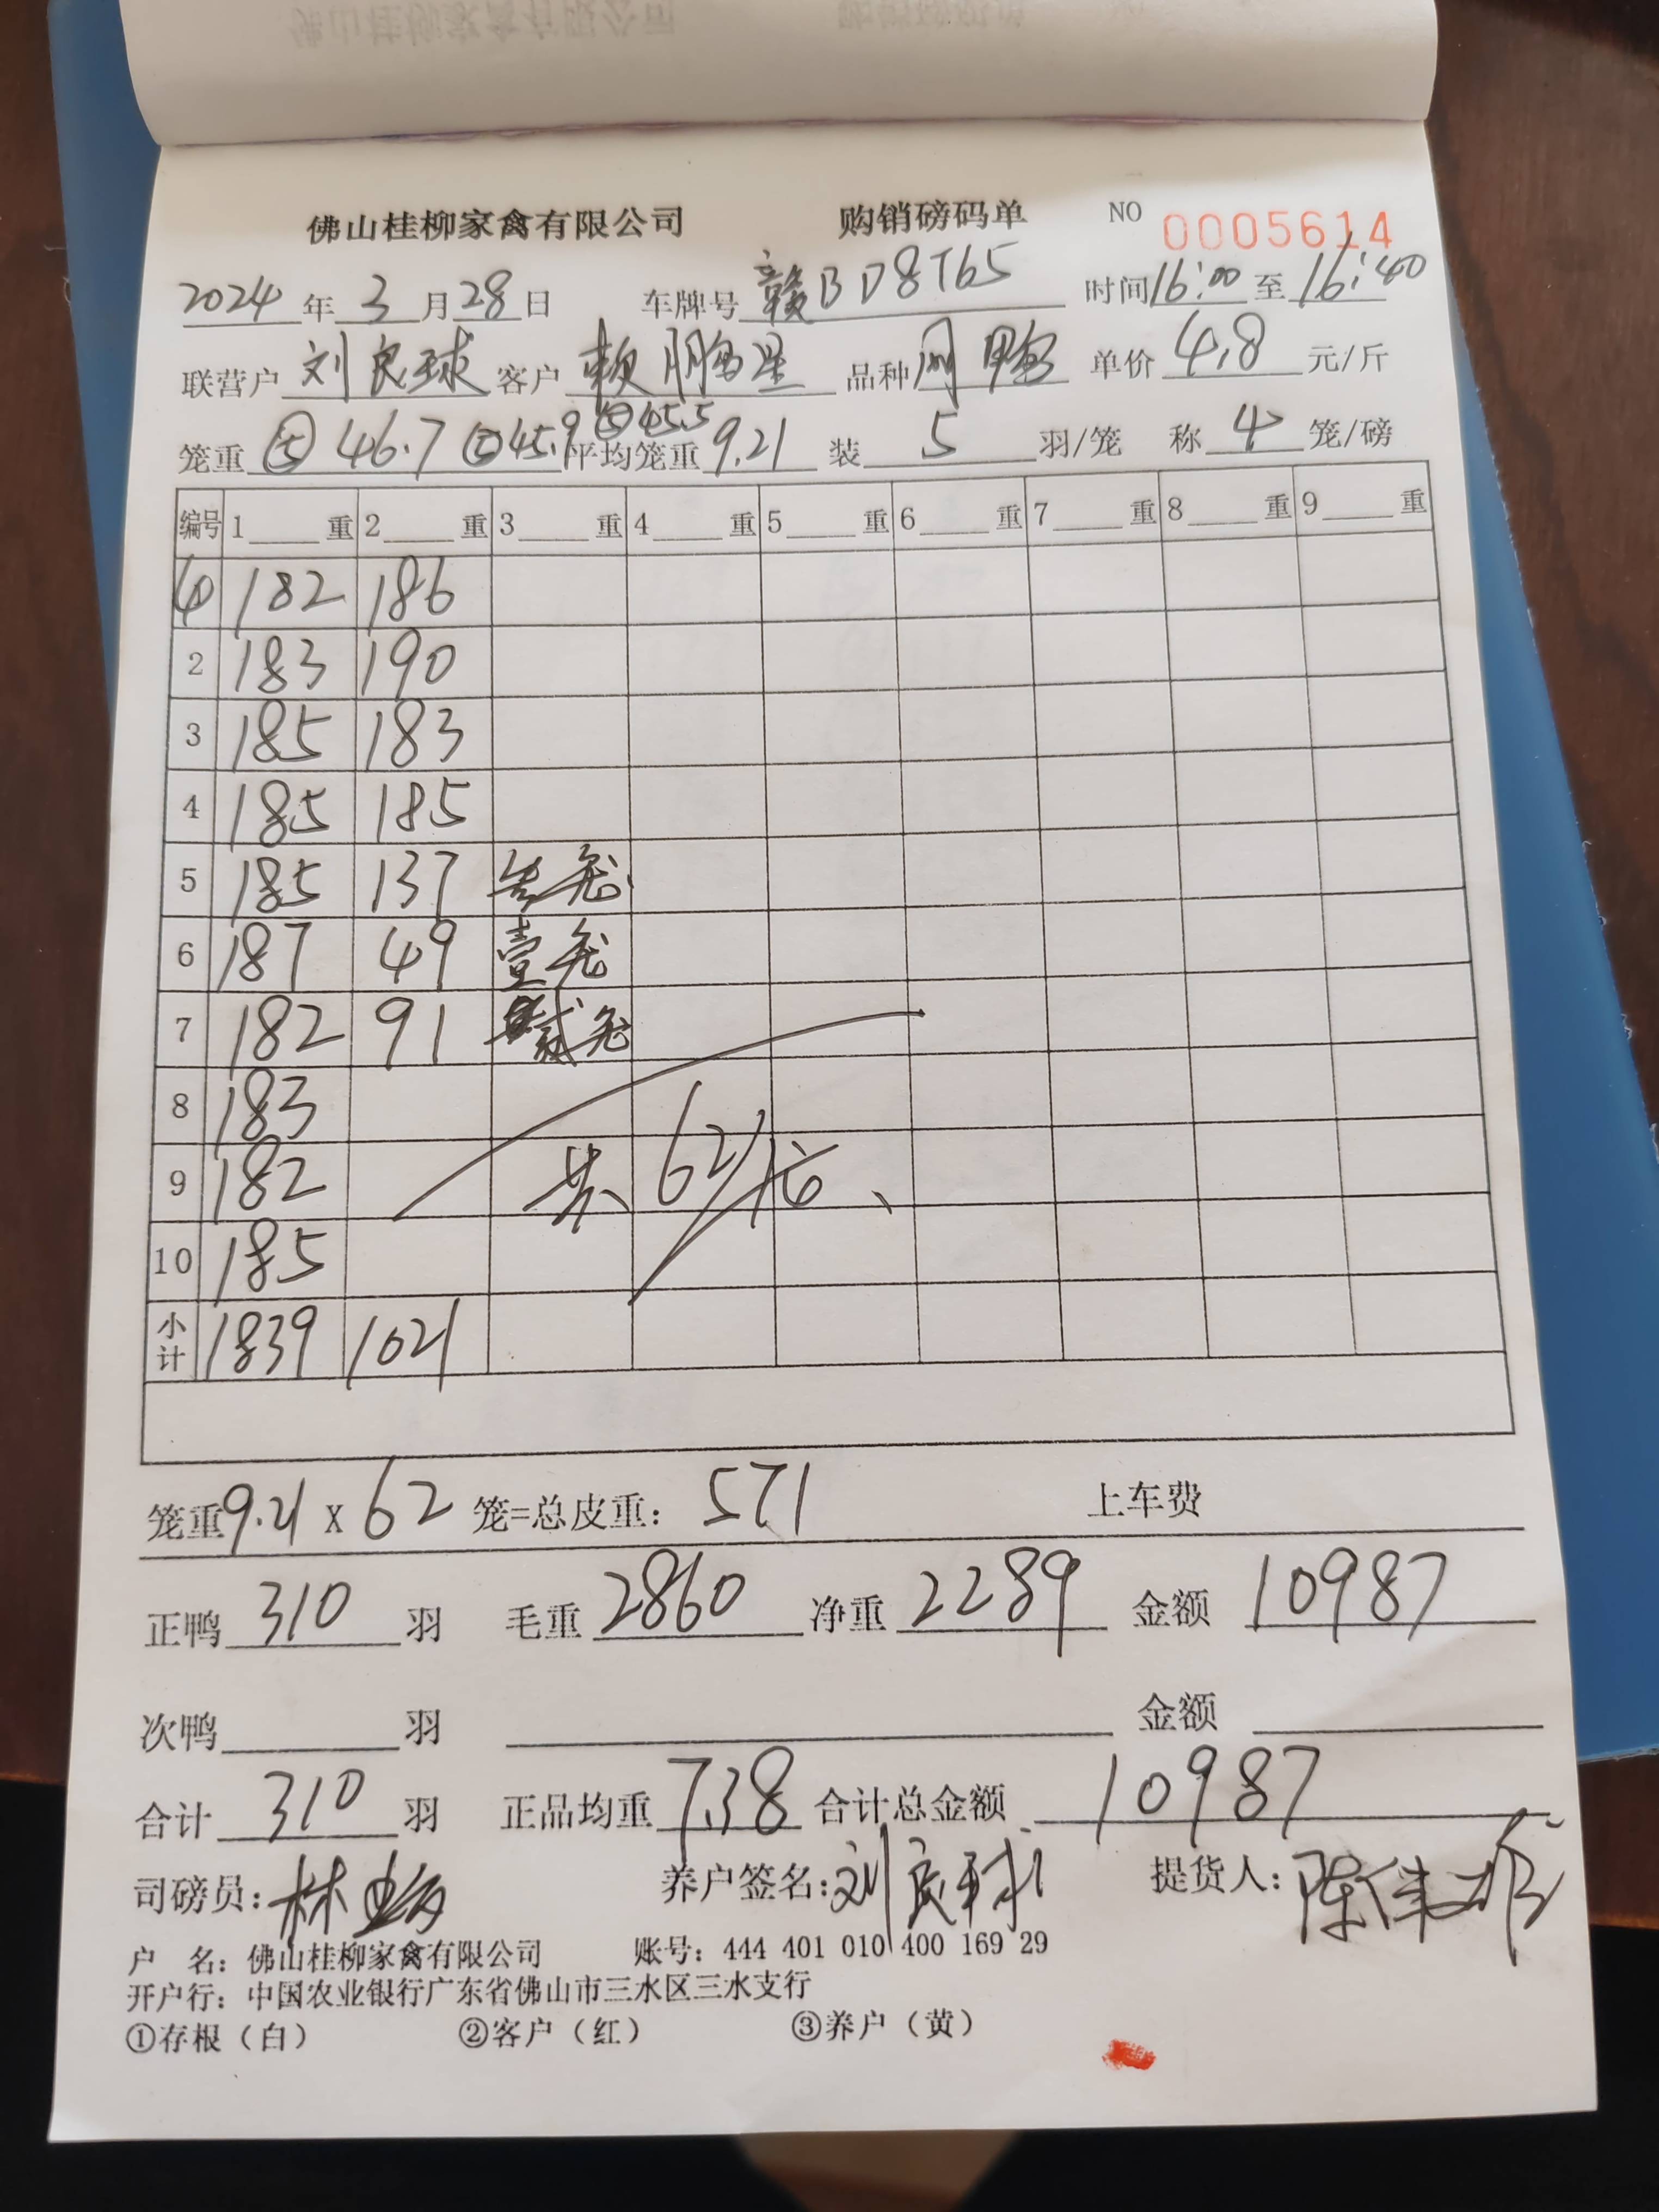 佛山桂柳家禽有限公司 购销磅码单 NO 0005614
2024年3月28日 车牌号赣BD8T65 时间16:00至16:40
联营户刘良球客户赖鹏星品种 鸭单价4.8元/斤
笼重⑤46.7⑤45.9⑤45.5平均笼重9.21装5羽/笼 称4笼/磅
编号 1____重 2____重 3____重 4____重 5____重 6____重 7____重 8____重 9____重
182 186
2 183 190
3 185 183
4 185 185
5 185 137 笼
6 187 49 壹笼
7 182 91 贰笼
8 183
9 182 共62
10 185
小计 1839 1021
笼重9.21x62笼=总皮重:571 上车费
正鸭310羽 毛重2860净重2289 金额10987
次鸭____羽 金额
合计310羽 正品均重7.38合计总金额10987
司磅员:林 养户签名:刘良球 提货人:陈伟雄
户 名:佛山桂柳家禽有限公司 账号:444 401 010 400 169 29
开户行:中国农业银行广东省佛山市三水区三水支行
①存根(白) ②客户(红) ③养户(黄)